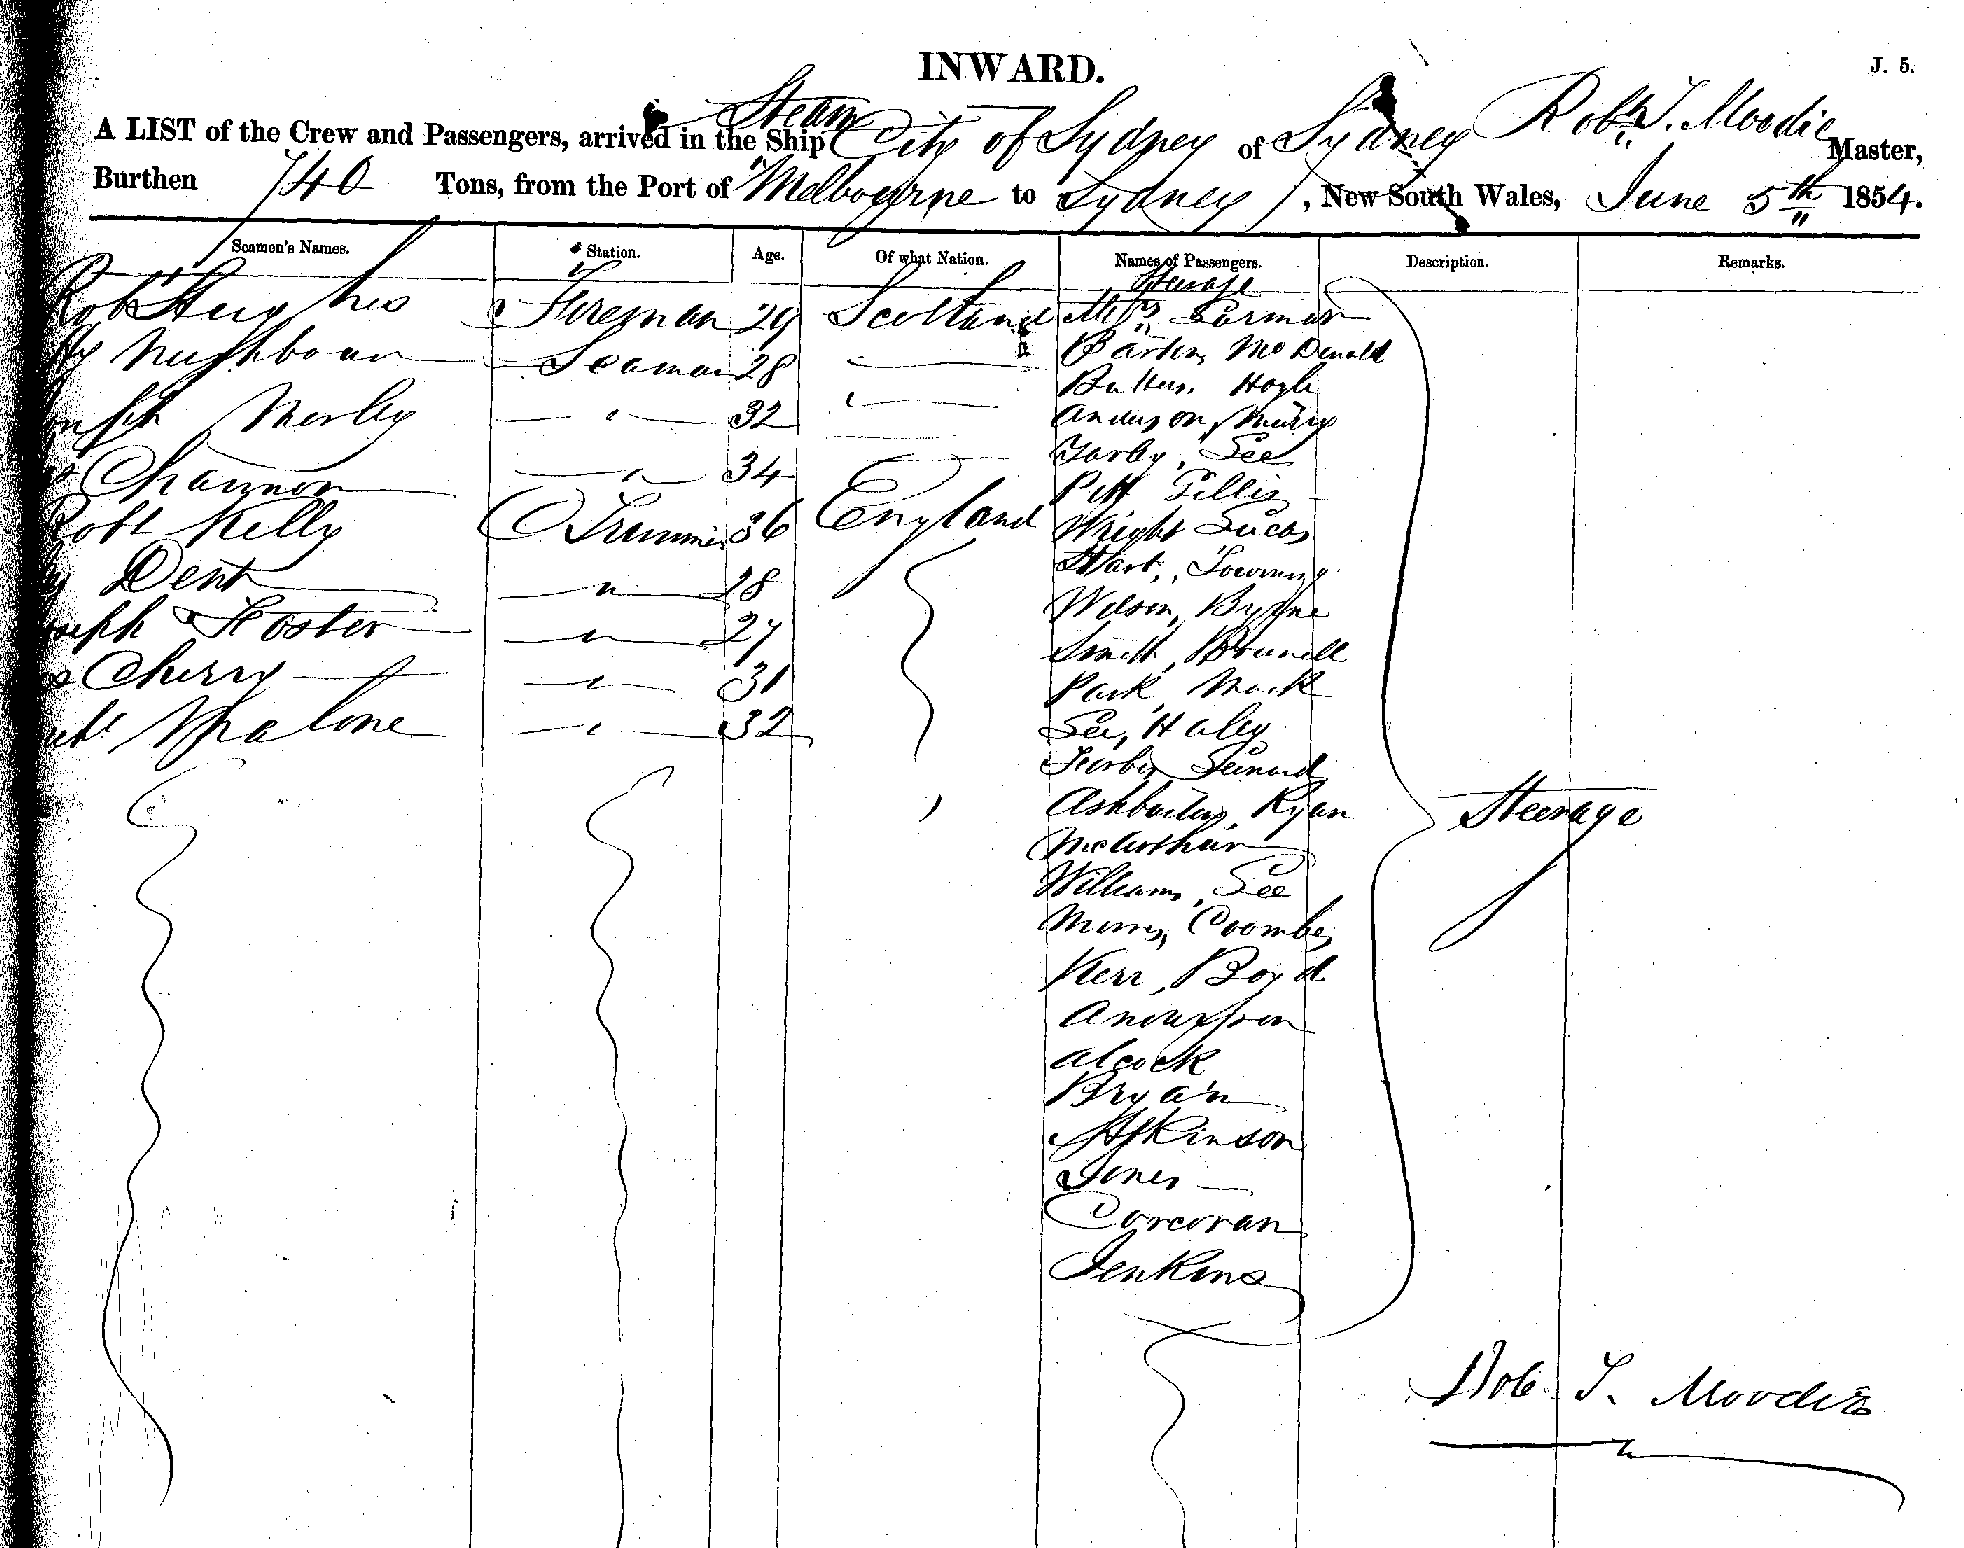 INWARD.
J. 5.
A LIST of the Crew and Passengers, arrived in the Steam Ship City of Sydney of Sydney Robt. T. Moodie Master,
Burthen 740 Tons, from the Port of Melbourne to Sydney, New South Wales, June 5th 1854.
Seamen's Names. Station. Age. Of what Nation. Names of Passengers. Description. Remarks.
Steerage
Robt Hughes Fireman 29 Scotland Messrs Gorman
Hy Neighbour Seaman 28 — McDonald
Hoyle
Joseph Morley — " — 32 " — Anderson,
Channon — " — 34 — Darby, Lee
Pitt Gillis
Robt Kelly Trimmer 36 England Wright Lucas
Hart,
Dent — " — 28 Wilson, Byrne
Joseph Foster — " — 27 Smith,
Cherry — " — 31 Park, Mack
Malone — " — 32 Lee, Haley
Ryan
McArthur
Steerage
Williams, Lee
Morris, Coombes
Kerr, Boyd
Anderson
Alcock
Bryan
Atkinson
Jones
Corcoran
Jenkins
Rob T. Moodie